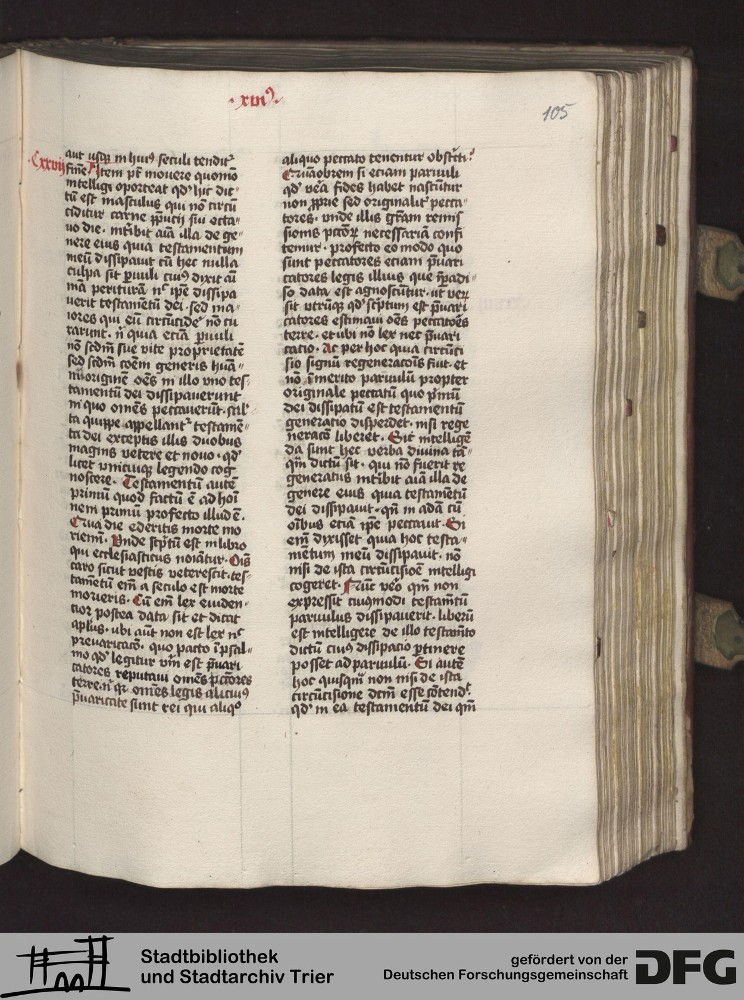 ·xiii⁹·
105
aut usq; in hui⁹ seculi tendit᷑
·Cxxvij fine᷑ Item pt̄ mouere quomō
intelligi oporteat qd̓ hic dic-
tū est masculus qui nō circū
ciditur carne p̄pucij sui octa-
uo die· int̓ibit aīa illa de ge-
nere eius quia testamentum
meū dissipauit cū hec nulla
culpa sit p̄uuli cui⁹ dixit aī
mā perituram nͨ ip̄e dissipa
uerit testametū dei· sed ma-
iores qui eū circūcide̓ nō cu
rarunt· n̓ quia eciā p̄uuli
nō scdm̄ sue vite proprietatē
sed scdm̄ cōem generis huā-
ni originē oēs in illo vno tes
tamentū dei dissipauerunt
in quo omēs peccauerūt· sūt
ta quippe appellant᷑ testamē-
ta dei exceptis illis duobus
magnis vetere et nouo· qd̓
licet vnicuiq; legendo cog
noscere· Testamentū autē
primū quod factū ē ad hoī
nem primū profecto illud ē·
Qua die ederitis morte mo
riemī· Vnde sc̓ptū est in libro
qui ecclesiasticus noīatur· Oīs
caro sicut vestis veterescit· tes-
tametū em̄ a seculo est morte
morieris· Cū em̄ lex euiden-
cior postea data sit et dicat
apl̄us· ubi aūt non est lex nͨ
preuaricacō· quo pacto i psal-
mo qd̓ legitur vm̄ est p̄uari
catores reputaui omēs p̄ctōres
terre· n̓ qr omēs legis alicui⁹
p̄uaricate sunt rei qui aliqͦ
aliquo peccato tenentur obstc̄ti·
Quāobrem si eciam paruuli
qd̓ vera fides habet nascūtur
non p̱prie sed originalit̓ pecca-
tores· vnde illis gr̄am remis
sionis pccōr̄ necessariam confi
temur· profecto eo modo quo
sunt peccatores eciam p̄uari
catores legis illius que ī paradi-
so data est agnoscūtur· ut ver
sit utrūq; qd̓ sc̓ptum est p̄uari
catores estimaui oēs peccatoēs
terre· et ubi nō lex nec p̄uari
cacio· Ac per hoc quia circūci
sio signū regeneracōis fuit· et
nō īmerito paruulū propter
originale peccatū quo p̓mū
dei dissipatū est testamentū
generacio disperdet· nisi rege
neracō liberet· Sic intelligē
da sunt hec verba diuina tā-
qm̄ dictū sit· qui nō fuerit re
generatus int̓ibit aīa illa de
genere eius quia testamētū
dei dissipauit· qn̄ in adā cū
oībus eciā ip̄e peccauit· Si
em̄ dixisset quia hoc testa-
mentum meū dissipauit· nō
nisi de ista circūcisiōe intelligi
cogeret᷑· Nūc v̓o qm̄ non
expressit cui⁹modi testamētū
paruulus dissipauerit· liberū
est intelligere de illo testam̄to
dictū cui⁹ dissipacio p̱tinere
posset ad paruulū· Si autē
hoc quisqm̄ non nisi de ista
circūcisione dc̄m esse cōtend᷑·
qd̓ in ea testamentū dei qm̄
Stadtbibliothek
und Stadtarchiv Trier
gefördert von der
Deutschen Forschungsgemeinschaft
DFG